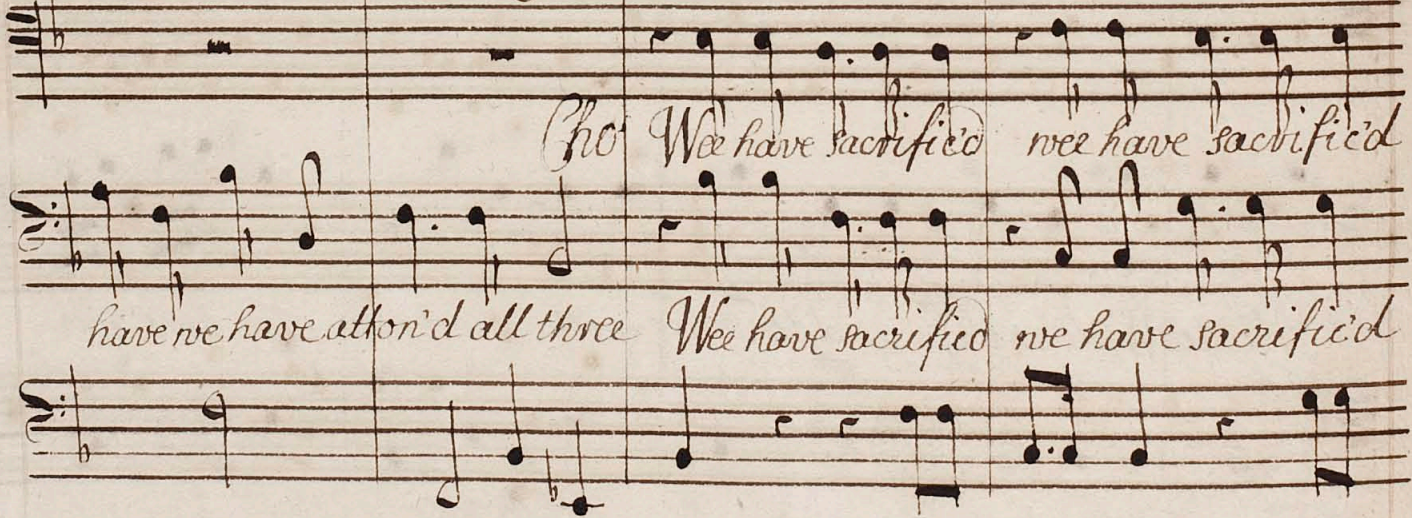 Cho Wee have sacrific'd wee have sacrific'd
have we have atton'd all three Wee have sacrificd we have sacrific'd